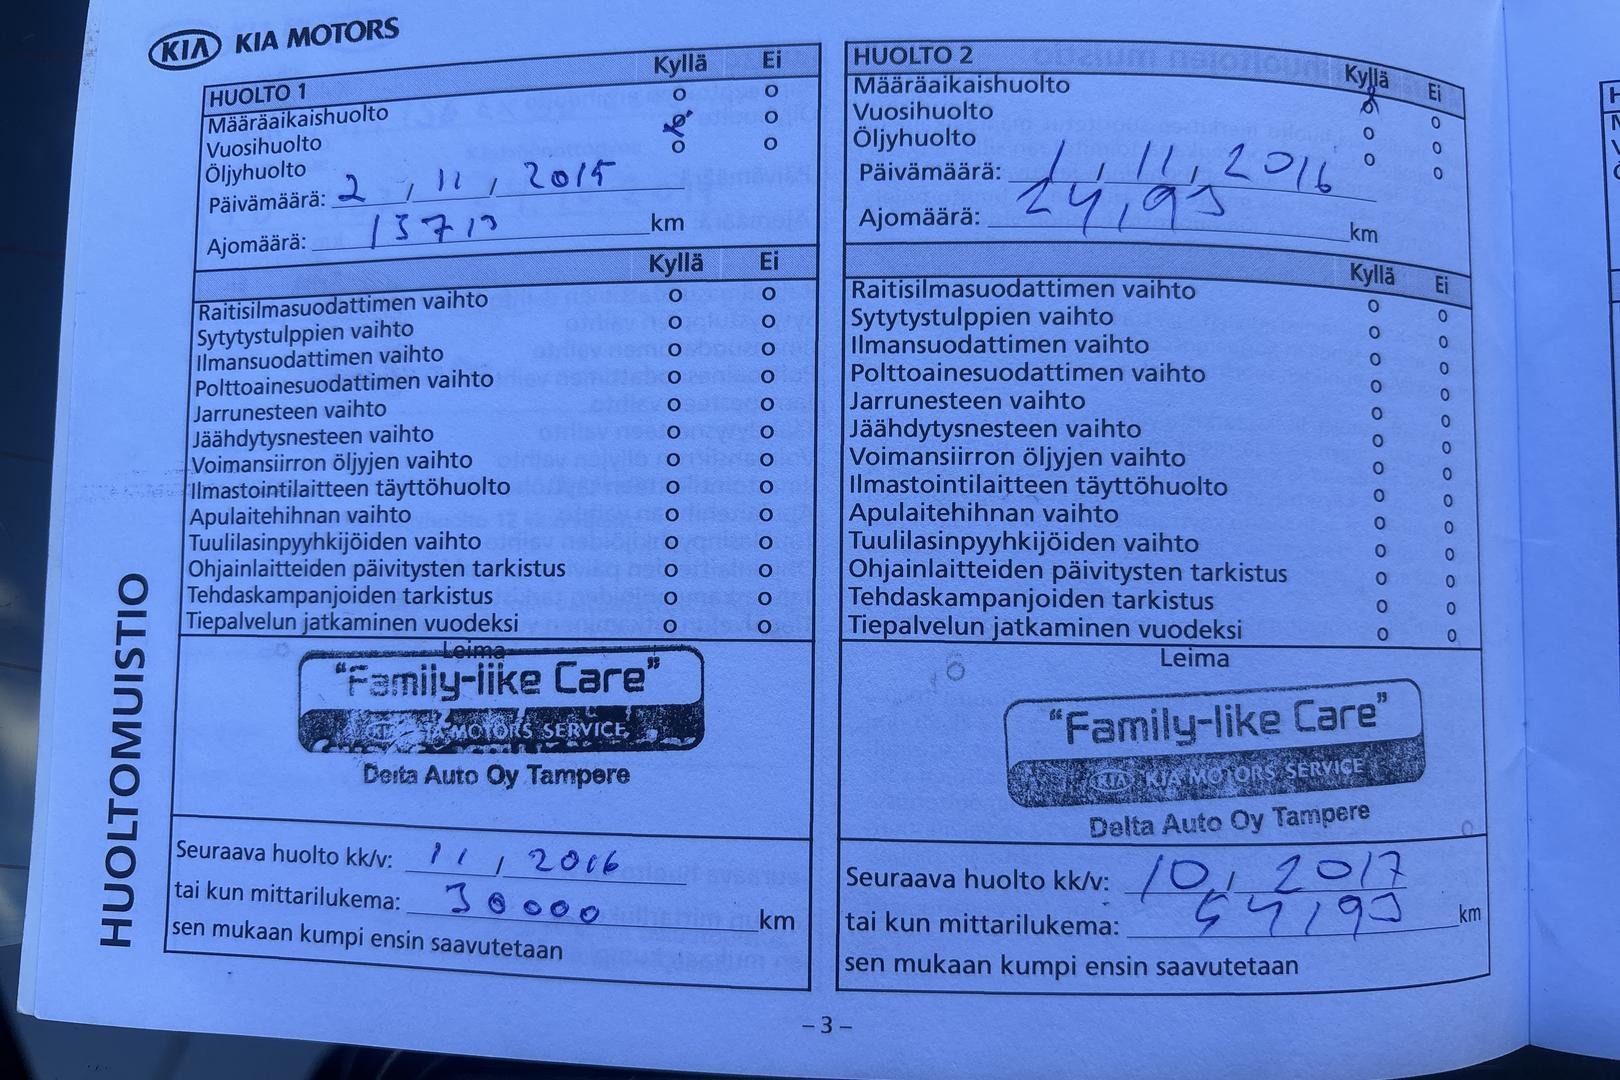 KIA KIA MOTORS
HUOLTOMUISTIO
HUOLTO 1 Kyllä Ei
Määräaikaishuolto o o
Vuosihuolto o
Öljyhuolto o o
Päivämäärä: 2 , 11 , 2015
Ajomäärä: 13713 km
Kyllä Ei
Raitisilmasuodattimen vaihto o o
Sytytystulppien vaihto o o
Ilmansuodattimen vaihto o o
Polttoainesuodattimen vaihto o o
Jarrunesteen vaihto o o
Jäähdytysnesteen vaihto o o
Voimansiirron öljyjen vaihto o o
Ilmastointilaitteen täyttöhuolto o o
Apulaitehihnan vaihto o o
Tuulilasinpyyhkijöiden vaihto o o
Ohjainlaitteiden päivitysten tarkistus o o
Tehdaskampanjoiden tarkistus o o
Tiepalvelun jatkaminen vuodeksi o o
Leima
"Family-like Care"
KIA KIA MOTORS SERVICE
Delta Auto Oy Tampere
Seuraava huolto kk/v: 11 / 2016
tai kun mittarilukema: 30000 km
sen mukaan kumpi ensin saavutetaan
HUOLTO 2 Kyllä Ei
Määräaikaishuolto o
Vuosihuolto o o
Öljyhuolto o o
Päivämäärä: 1 , 11 , 2016
Ajomäärä: km
Kyllä Ei
Raitisilmasuodattimen vaihto o o
Sytytystulppien vaihto o o
Ilmansuodattimen vaihto o o
Polttoainesuodattimen vaihto o o
Jarrunesteen vaihto o o
Jäähdytysnesteen vaihto o o
Voimansiirron öljyjen vaihto o o
Ilmastointilaitteen täyttöhuolto o o
Apulaitehihnan vaihto o o
Tuulilasinpyyhkijöiden vaihto o o
Ohjainlaitteiden päivitysten tarkistus o o
Tehdaskampanjoiden tarkistus o o
Tiepalvelun jatkaminen vuodeksi o o
Leima
"Family-like Care"
KIA KIA MOTORS SERVICE
Delta Auto Oy Tampere
Seuraava huolto kk/v: 10 / 2017
tai kun mittarilukema: km
sen mukaan kumpi ensin saavutetaan
– 3 –